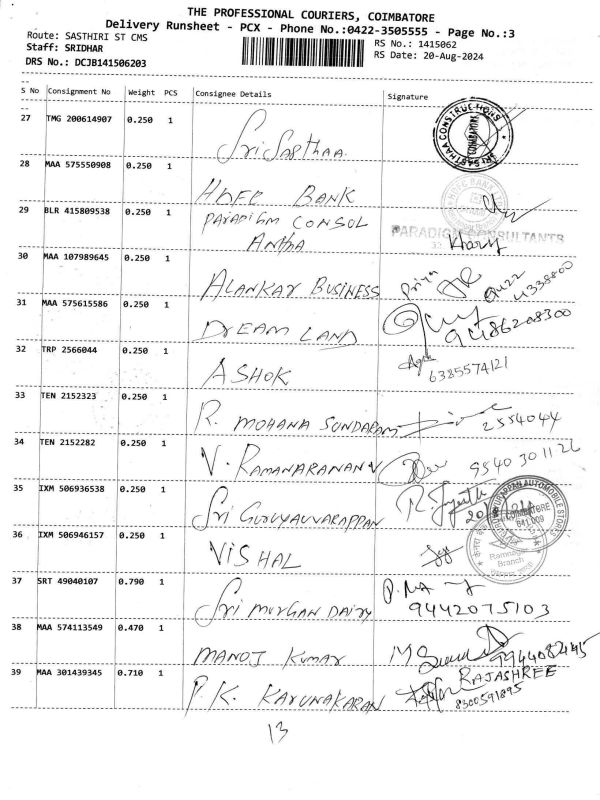 THE PROFESSIONAL COURIERS, COIMBATORE
Delivery Runsheet - PCX - Phone No.:0422-3505555 - Page No.:3
Route: SASTHIRI ST CMS
RS No.: 1415062
Staff: SRIDHAR
RS Date: 20-Aug-2024
DRS No.: DCJB141506203
S No Consignment No Weight PCS Consignee Details Signature
27 TMG 200614907 0.250 1 Sri Sasthaa
SRI SASTHAA CONSTRUCTIONS COIMBATORE
28 MAA 575550908 0.250 1 HDFC BANK
29 BLR 415809538 0.250 1 PARADIGM CONSOL
PARADIGM CONSULTANTS
30 MAA 107989645 0.250 1 ALANKAR BUSINESS Priya
31 MAA 575615586 0.250 1 DREAM LAND
9486208300
32 TRP 2566044 0.250 1 ASHOK
6385574121
33 TEN 2152323 0.250 1 R. MOHANA SUNDARAM 2554044
34 TEN 2152282 0.250 1 V. RAMANARANAN V 9540301126
35 IXM 506936538 0.250 1 Sri GURUVAUVARAPPAN
COIMBATORE
641 009
36 IXM 506946157 0.250 1 VISHAL
Ramnagar
Branch
37 SRT 49040107 0.790 1 Sri MURGAN DAIRY
9442075103
38 MAA 574113549 0.470 1 MANOJ KUMAR
39 MAA 301439345 0.710 1 P.K. KARUNAKARAN
RAJASHREE
8300591895
13